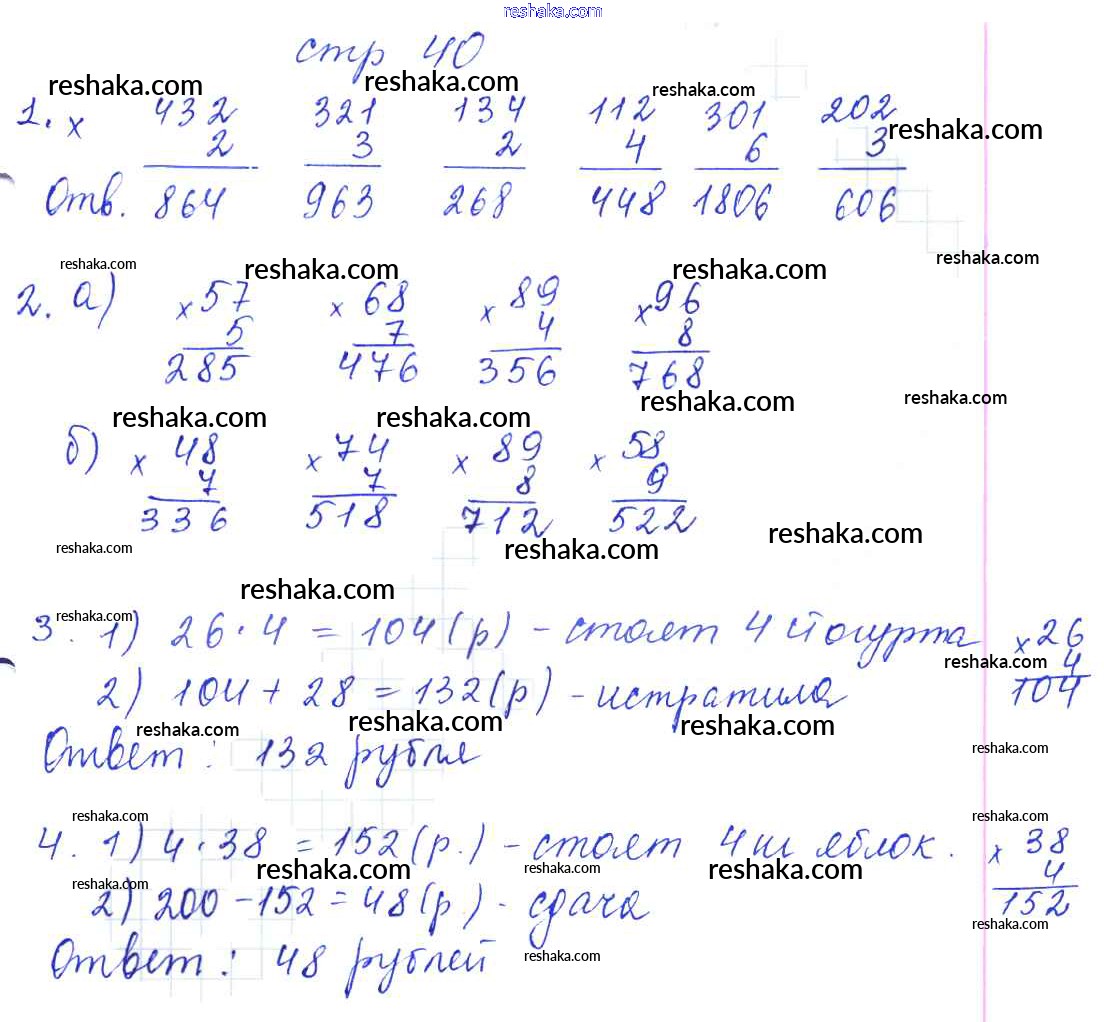 reshaka.com
стр 40
reshaka.com reshaka.com reshaka.com
1. х 432 321 134 112 301 202
2 3 2 4 6 3 reshaka.com
Отв. 864 963 268 448 1806 606
reshaka.com reshaka.com reshaka.com reshaka.com
2. а) х 57 х 68 х 89 х 96
5 7 4 8
285 476 356 768
reshaka.com reshaka.com reshaka.com reshaka.com
б) х 48 х 74 х 89 х 58
7 7 8 9
336 518 712 522
reshaka.com reshaka.com reshaka.com
reshaka.com
reshaka.com
3. 1) 26 · 4 = 104 (р) - стоят 4 йогурта х 26
reshaka.com 4
2) 104 + 28 = 132 (р) - истратила 104
reshaka.com reshaka.com reshaka.com
Ответ : 132 рубля reshaka.com
reshaka.com reshaka.com
4. 1) 4 · 38 = 152 (р.) - стоят 4 кг яблок. х 38
reshaka.com reshaka.com reshaka.com 4
2) 200 - 152 = 48 (р.) - сдача 152
reshaka.com
Ответ : 48 рублей reshaka.com